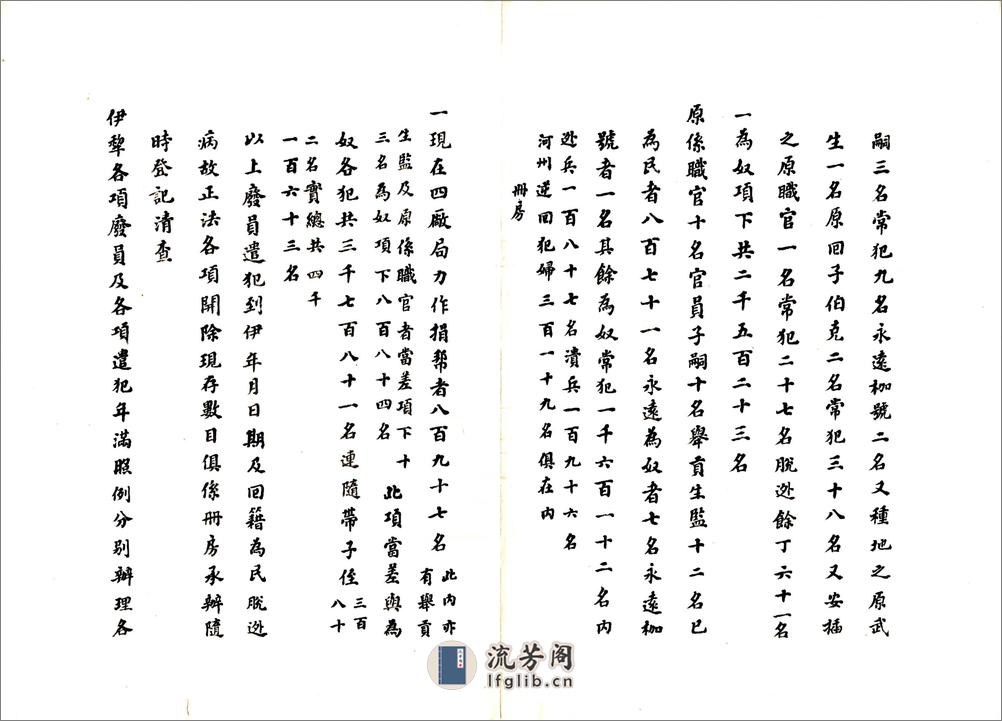 嗣三名常犯九名永遠枷號二名又種地之原武
生一名原回子伯克二名常犯三十八名又安插
之原職官一名常犯二十七名脫逃餘丁六十一名
一為奴項下共二千五百二十三名
原係職官十名官員子嗣十名舉貢生監十二名已
為民者八百七十一名永遠為奴者七名永遠枷
號者一名其餘為奴常犯一千六百一十二名內
逃兵一百八十七名潰兵一百九十六名
河州逆回犯婦三百一十九名俱在內
冊房
一現在四廠局力作捐幫者八百九十七名
此內亦
有舉貢
生監及原係職官者當差項下十
三名為奴項下八百八十四名
此項當差與為
奴各犯共三千七百八十一名連隨帶子侄
三百
八十
二名實總共四千
一百六十三名
以上廢員遣犯到伊年月日期及回籍為民脫逃
病故正法各項開除現存數目俱係冊房承辦隨
時登記清查
伊犂各項廢員及各項遣犯年滿照例分別辦理各
流芳阁
lfglib.cn